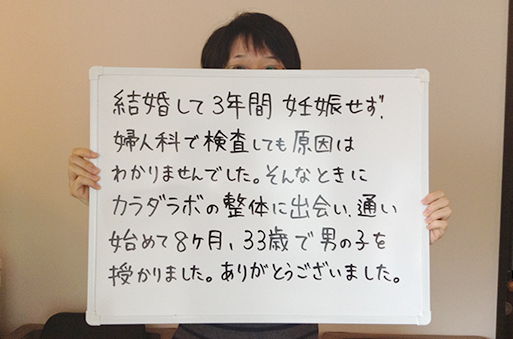 結婚して3年間 妊娠せず、
婦人科で検査しても原因は
わかりませんでした。そんなときに
カラダラボの整体に出会い、通い
始めて8ヶ月、33歳で男の子を
授かりました。ありがとうございました。